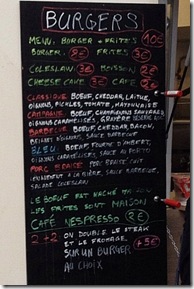 BURGERS
MENU: BURGER + FRITES 10€
BURGERS: 8€ FRITES 3€
COLESLAW: 3€ BOISSON 2€
CHEESE CAKE 3€ CAFÉ
CLASSIQUE BOEUF, CHEDDAR, LAITUE,
OIGNONS, PICKLES, TOMATE, MAYONNAISE
CAMPAGNE: BOEUF, CHAMPIGNONS SAUVAGES
OIGNONS CARAMELISÉS, GRUYÈRE
BARBECUE BOEUF, CHEDDAR, BACON,
OIGNONS, SAUCE BARBECUE
BLEU: BOEUF, FOURME D'AMBERT,
OIGNONS CARAMELISÉS, SAUCE AU PORTO
PORC BRAISÉ PORC BRAISÉ CUIT
LENTEMENT A LA BIÈRE, SAUCE BARBECUE,
SALADE COLESLAW
LE BOEUF EST HACHÉ
LES FRITES SONT MAISON
CAFÉ NESPRESSO 2€
2+2 ON DOUBLE LE STEAK
ET LE FROMAGE +5€
SUR UN BURGER
AU CHOIX